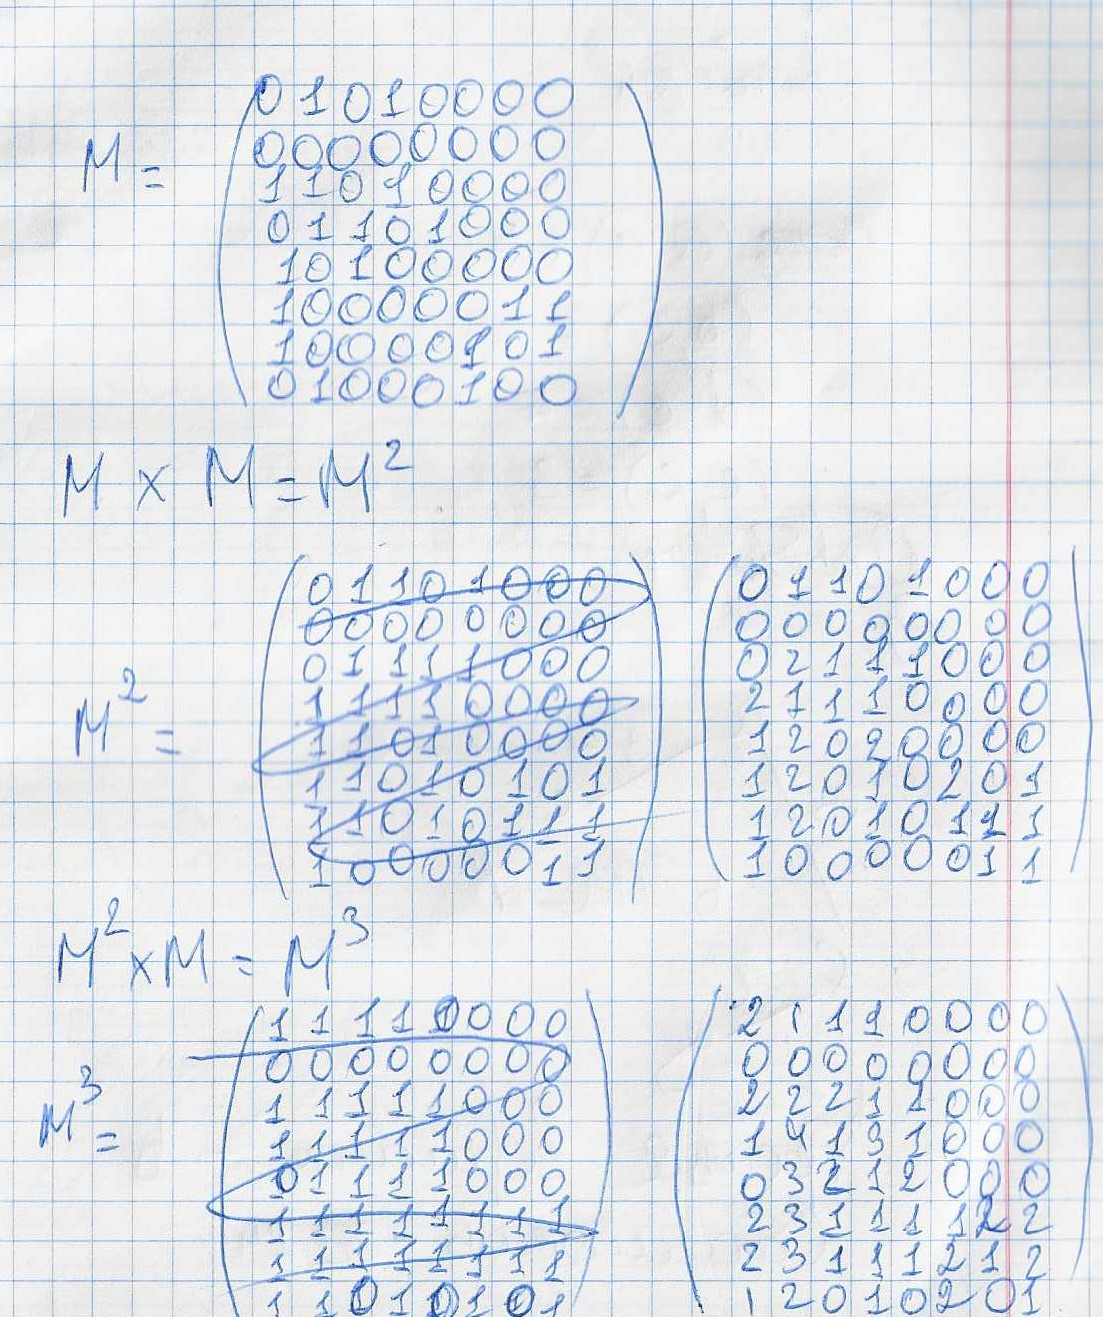 M = 0 1 0 1 0 0 0 0
0 0 0 0 0 0 0 0
1 1 0 1 0 0 0 0
0 1 1 0 1 0 0 0
1 0 1 0 0 0 0 0
1 0 0 0 0 0 1 1
1 0 0 0 0 1 0 1
0 1 0 0 0 1 0 0
M × M = M²
M² = 0 1 1 0 1 0 0 0
0 0 0 0 0 0 0 0
0 1 1 1 1 0 0 0
1 1 1 1 0 0 0 0
1 1 0 1 0 0 0 0
1 1 0 1 0 1 0 1
1 1 0 1 0 1 1 1
1 0 0 0 0 0 1 1
0 1 1 0 1 0 0 0
0 0 0 0 0 0 0 0
0 2 1 1 1 0 0 0
2 1 1 1 0 0 0 0
1 2 0 2 0 0 0 0
1 2 0 1 0 2 0 1
1 2 0 1 0 1 1 1
1 0 0 0 0 0 1 1
M² × M = M³
M³ = 1 1 1 1 0 0 0 0
0 0 0 0 0 0 0 0
1 1 1 1 1 0 0 0
1 1 1 1 1 0 0 0
0 1 1 1 1 0 0 0
1 1 1 1 1 1 1 1
1 1 1 1 1 1 1 1
1 1 0 1 0 1 0 1
2 1 1 1 0 0 0 0
0 0 0 0 0 0 0 0
2 2 2 1 1 0 0 0
1 4 1 3 1 0 0 0
0 3 2 1 2 0 0 0
2 3 1 1 1 1 2 2
2 3 1 1 1 2 1 2
1 2 0 1 0 2 0 1